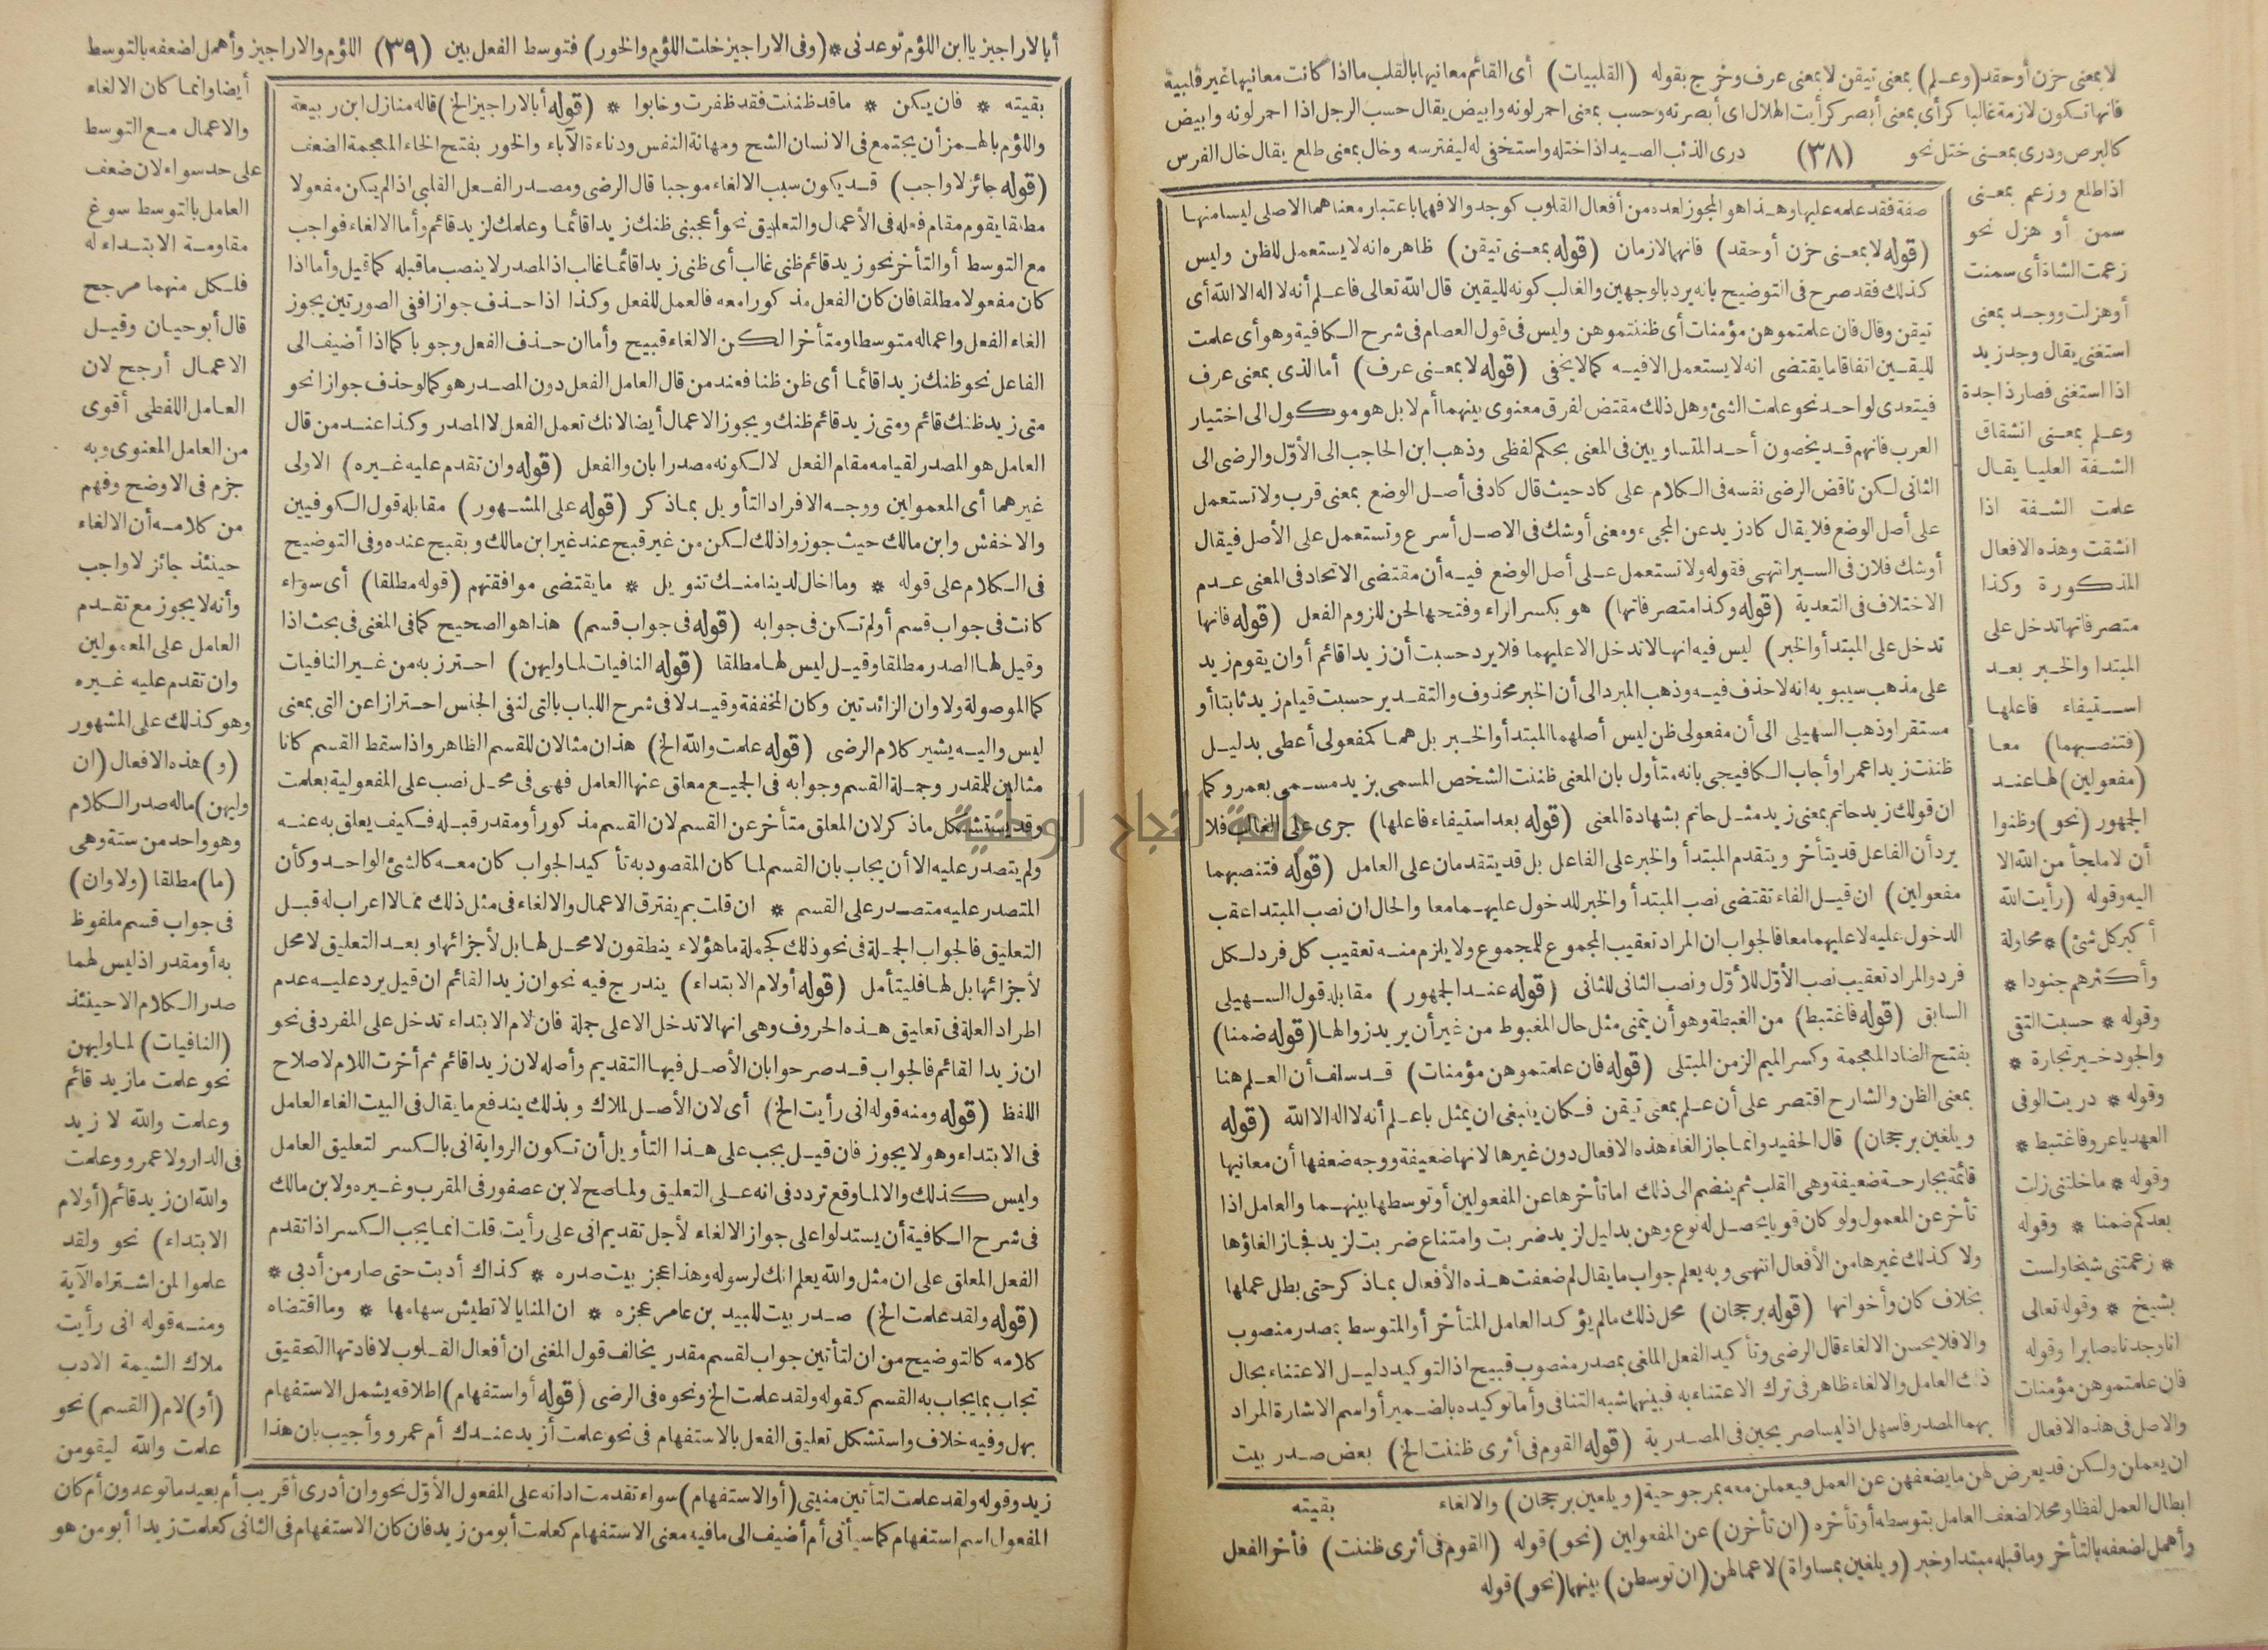 لا بمعنى حزن أو حقد (وعلم) بمعنى تيقن لا بمعنى عرف وخرج بقوله (القلبيات) أى القائم معانيها بالقلب ما اذا كانت معانيها غير قلبية
فانها تكون لازمة غالبا كرأى بمعنى أبصر كرأيت الهلال اى أبصرته وحسب بمعنى احمر لونه وابيض يقال حسب الرجل اذا احمر لونه وابيض
كالبرص ودرى بمعنى ختل نحو (٣٨) درى الذئب الصيد اذا ختله واستخفى له ليفترسه وخال بمعنى ظلع يقال خال الفرس
اذا ظلع وزعم بمعنى
سمن أو هزل نحو
زعمت الشاة أى سمنت
أو هزلت ووجد بمعنى
استغنى يقال وجد زيد
اذا استغنى فصار ذا جدة
وعلم بمعنى انشقاق
الشفة العليا يقال
علمت الشفة اذا
انشقت وهذه الافعال
المذكورة وكذا
متصرفاتها تدخل على
المبتدا والخبر بعد
استيفاء فاعلها
(فتنصبهما) معا
(مفعولين) لها عند
الجمهور (نحو) وظنوا
أن لا ملجأ من الله الا
اليه وقوله (رأيت الله
أكبر كل شئ) * محاولة
وأكثرهم جنودا *
وقوله * حسبت التقى
والجود خير تجارة *
وقوله * دريت الوفى
العهد ياعرو فاغتبط *
وقوله * ما خلتنى زلت
بعدكم ضمنا * وقوله
* زعمتنى شيخا ولست
بشيخ * وقوله تعالى
انا وجدناه صابرا وقوله
فان علمتموهن مؤمنات
والاصل فى هذه الافعال
ان يعملن ولكن قد يعرض لهن ما يضعفهن عن العمل فيعملن معه بمرجوحية (ويلغين برجحان) والالغاء
ابطال العمل لفظا ومحلا لضعف العامل بتوسطه أو تأخره (ان تأخرن) عن المفعولين (نحو) قوله (القوم فى أثرى ظننت) فأخر الفعل
وأهمل لضعفه بالتأخر وما قبله مبتدا وخبر (ويلغين بمساواة) لاعمالهن (ان توسطن) بينهما (نحو) قوله
صفة فقد علمه عليها وهذا هو المجوز لعده من أفعال القلوب كوجد والا فهما باعتبار معناهما الاصلى ليسا منها
(قوله لا بمعنى حزن أو حقد) فانهما لازمان (قوله بمعنى تيقن) ظاهره انه لا يستعمل للظن وليس
كذلك فقد صرح فى التوضيح بانه يرد بالوجهين والغالب كونه لليقين قال الله تعالى فاعلم أنه لا اله الا الله أى
تيقن وقال فان علمتموهن مؤمنات أى ظننتموهن وليس فى قول العصام فى شرح الكافية وهو أى علمت
لليقين اتفاقا ما يقتضى انه لا يستعمل الا فيه كما لا يخفى (قوله لا بمعنى عرف) أما الذى بمعنى عرف
فيتعدى لواحد نحو علمت الشئ وهل ذلك مقتض لفرق معنوى بينهما أم لا بل هو موكول الى اختيار
العرب فانهم قد يخصون أحد المتساويين فى المعنى بحكم لفظى وذهب ابن الحاجب الى الأول والرضى الى
الثانى لكن ناقض الرضى نفسه فى الكلام على كاد حيث قال كاد فى أصل الوضع بمعنى قرب ولا تستعمل
على أصل الوضع فلا يقال كاد زيد عن المجىء ومعنى أوشك فى الاصل أسرع وتستعمل على الأصل فيقال
أوشك فلان فى السير انتهى فقوله ولا تستعمل على أصل الوضع فيه أن مقتضى الاتحاد فى المعنى عدم
الاختلاف فى التعدية (قوله وكذا متصرفاتها) هو بكسر الراء وفتحها لحن للزوم الفعل (قوله فانها
تدخل على المبتدأ والخبر) ليس فيه انها لا تدخل الا عليهما فلا يرد حسبت أن زيدا قائم أو ان يقوم زيد
على مذهب سيبويه انه لا حذف فيه وذهب المبرد الى أن الخبر محذوف والتقدير حسبت قيام زيد ثابتا أو
مستقرا وذهب السهيلى الى أن مفعولى ظن ليس أصلهما المبتدأ والخبر بل هما كمفعولى أعطى بدليل
ظننت زيدا عمرا وأجاب الكافيجى بانه متأول بان المعنى ظننت الشخص المسمى بزيد مسمى بعمرو كما
ان قولك زيد حاتم بمعنى زيد مثل حاتم بشهادة المعنى (قوله بعد استيفاء فاعلها) جرى على الغالب فلا
يرد أن الفاعل قد يتأخر ويتقدم المبتدأ والخبر على الفاعل بل قد يتقدمان على العامل (قوله فتنصبهما
مفعولين) ان قيل الفاء تقتضى نصب المبتدأ والخبر للدخول عليهما معا والحال ان نصب المبتدا عقب
الدخول عليه لا عليهما معا فالجواب ان المراد تعقيب المجموع للمجموع ولا يلزم منه تعقيب كل فرد لكل
فرد والمراد تعقيب نصب الأول للأول ونصب الثانى للثانى (قوله عند الجمهور) مقابله قول السهيلى
السابق (قوله فاغتبط) من الغبطة وهو أن يتمنى مثل حال المغبوط من غير أن يريد زوالها (قوله ضمنا)
بفتح الضاد المعجمة وكسر الميم الزمن المبتلى (قوله فان علمتموهن مؤمنات) قد سلف أن العلم هنا
بمعنى الظن والشارح اقتصر على أن علم بمعنى تيقن فكان ينبغى ان يمثل باعلم أنه لا اله الا الله (قوله
ويلغين برجحان) قال الحفيد وانما جاز الغاء هذه الافعال دون غيرها لانها ضعيفة ووجه ضعفها أن معانيها
قائمة بجارحة ضعيفة وهى القلب ثم ينضم الى ذلك اما تأخرها عن المفعولين أو توسطها بينهما والعامل اذا
تأخر عن المعمول ولو كان قويا يحصل له نوع وهن بدليل لزيد ضربت وامتناع ضربت لزيد فجاز الغاؤها
ولا كذلك غيرها من الأفعال انتهى وبه يعلم جواب ما يقال لم ضعفت هذه الأفعال بما ذكر حتى بطل عملها
بخلاف كان وأخواتها (قوله برجحان) محل ذلك ما لم يؤكد العامل المتأخر أو المتوسط بمصدر منصوب
والا فلا يحسن الالغاء قال الرضى وتأكيد الفعل الملغى بمصدر منصوب قبيح اذ التوكيد دليل الاعتناء بحال
ذلك العامل والالغاء ظاهر فى ترك الاعتناء به فبينهما شبه التنافى وأما توكيده بالضمير أو اسم الاشارة المراد
بهما المصدر فاسهل اذ ليسا صريحين فى المصدرية (قوله القوم فى أثرى ظننت الخ) بعض صدر بيت
بقيته
أبا لاراجيز يا ابن اللؤم توعدنى * (وفى الاراجيز خلت اللؤم والخور) فتوسط الفعل بين (٣٩) اللؤم والاراجيز وأهمل لضعفه بالتوسط
أيضا وانما كان الالغاء
والاعمال مع التوسط
على حد سواء لان ضعف
العامل بالتوسط سوغ
مقاومة الابتداء له
فلكل منهما مرجح
قال أبو حيان وقيل
الاعمال أرجح لان
العامل اللفظى أقوى
من العامل المعنوى وبه
جزم فى الاوضح وفهم
من كلامه أن الالغاء
حينئذ جائز لا واجب
وأنه لا يجوز مع تقدم
العامل على المعمولين
وان تقدم عليه غيره
وهو كذلك على المشهور
(و) هذه الافعال (ان
وليهن) ماله صدر الكلام
وهو واحد من ستة وهى
(ما) مطلقا (ولا وان)
فى جواب قسم ملفوظ
به أو مقدر اذ ليس لهما
صدر الكلام الا حينئذ
(النافيات) لما وليهن
نحو علمت ما زيد قائم
وعلمت والله لا زيد
فى الدار ولا عمرو وعلمت
والله ان زيد قائم (أو لام
الابتداء) نحو ولقد
علموا لمن اشتراه الآية
ومنه قوله انى رأيت
ملاك الشيمة الادب
(أو) لام (القسم) نحو
علمت والله ليقومن
زيد وقوله ولقد علمت لتأتين منيتى (أو الاستفهام) سواء تقدمت اداته على المفعول الأول نحو وان أدرى أقريب أم بعيد ما توعدون أم كان
المفعول اسم استفهام كما سيأتى أم أضيف الى ما فيه معنى الاستفهام كعلمت أبو من زيد فان كان الاستفهام فى الثانى كعلمت زيدا أبو من هو
بقيته * فان يكن * ما قد ظننت فقد ظفرت وخابوا * (قوله أبا لاراجيز الخ) قاله منازل ابن ربيعة
واللؤم بالهمز أن يجتمع فى الانسان الشح ومهانة النفس ودناءة الآباء والخور بفتح الخاء المعجمة الضعف
(قوله جائز لا واجب) قد يكون سبب الالغاء موجبا قال الرضى ومصدر الفعل القلبى اذا لم يكن مفعولا
مطلقا يقوم مقام فعله فى الأعمال والتعليق نحو أعجبنى ظنك زيدا قائما وعلمك لزيد قائم وأما الالغاء فواجب
مع التوسط أو التأخر نحو زيد قائم ظنى غالب أى ظنى زيدا قائما غالب اذ المصدر لا ينصب ما قبله كما قيل وأما اذا
كان مفعولا مطلقا فان كان الفعل مذكورا معه فالعمل للفعل وكذا اذا حذف جوازا ففى الصورتين يجوز
الغاء الفعل واعماله متوسطا ومتأخرا لكن الالغاء قبيح وأما ان حذف الفعل وجوبا كما اذا أضيف الى
الفاعل نحو ظنك زيدا قائما أى ظن ظنا فعند من قال العامل الفعل دون المصدر هو كما لو حذف جوازا نحو
متى زيد ظنك قائم ومتى زيد قائم ظنك ويجوز الاعمال أيضا لانك تعمل الفعل لا المصدر وكذا عند من قال
العامل هو المصدر لقيامه مقام الفعل لا لكونه مصدرا بان والفعل (قوله وان تقدم عليه غيره) الاولى
غيرهما أى المعمولين ووجه الافراد التأويل بما ذكر (قوله على المشهور) مقابله قول الكوفيين
والاخفش وابن مالك حيث جوزوا ذلك لكن من غير قبح عند غير ابن مالك وبقبح عنده وفى التوضيح
فى الكلام على قوله * وما اخال لدينا منك تنويل * ما يقتضى موافقتهم (قوله مطلقا) أى سواء
كانت فى جواب قسم أو لم تكن فى جوابه (قوله فى جواب قسم) هذا هو الصحيح كما فى المغنى فى بحث اذا
وقيل لها الصدر مطلقا وقيل ليس لها مطلقا (قوله النافيات لما وليهن) احترز به من غير النافيات
كما الموصولة ولا وان الزائدتين وكان المخففة وقيد لا فى شرح اللباب بالتى لنفى الجنس احترازا عن التى بمعنى
ليس واليه يشير كلام الرضى (قوله علمت والله الخ) هذان مثالان للقسم الظاهر واذا سقط القسم كانا
مثالين للمقدر وجملة القسم وجوابه فى الجميع معلق عنها العامل فهى فى محل نصب على المفعولية بعلمت
وقد يستشكل ماذكر لان المعلق متأخر عن القسم لان القسم مذكور أو مقدر قبله فكيف يعلق به عنه
ولم يتصدر عليه الا أن يجاب بان القسم لما كان المقصود به تأكيد الجواب كان معه كالشئ الواحد وكأن
المتصدر عليه متصدر على القسم * ان قلت بم يفترق الاعمال والالغاء فى مثل ذلك مما لا اعراب له قبل
التعليق فالجواب الجملة فى نحو ذلك كجملة ما هؤلاء ينطقون لا محل لها بل لأجزائها وبعد التعليق لا محل
لأجزائها بل لها فليتأمل (قوله أو لام الابتداء) يندرج فيه نحو ان زيدا لقائم ان قيل يرد عليه عدم
اطراد العلة فى تعليق هذه الحروف وهى انها لا تدخل الا على جملة فان لام الابتداء تدخل على المفرد فى نحو
ان زيدا لقائم فالجواب قد صرحوا بان الأصل فيها التقديم وأصله لان زيدا قائم ثم أخرت اللام لاصلاح
اللفظ (قوله ومنه قوله انى رأيت الخ) أى لان الأصل لملاك وبذلك يندفع ما يقال فى البيت الغاء العامل
فى الابتداء وهو لا يجوز فان قيل يجب على هذا التأويل أن تكون الرواية انى بالكسر لتعليق العامل
وليس كذلك والا لما وقع تردد فى انه على التعليق ولما صح لابن عصفور فى المقرب وغيره ولابن مالك
فى شرح الكافية أن يستدلوا على جواز الالغاء لأجل تقديم انى على رأيت قلت انما يجب الكسر اذا تقدم
الفعل المعلق على ان مثل والله يعلم انك لرسوله وهذا عجز بيت صدره * كذاك أدبت حتى صار من أدبى *
(قوله ولقد علمت الخ) صدر بيت للبيد بن عامر عجزه * ان المنايا لا تطيش سهامها * وما اقتضاه
كلامه كالتوضيح من ان لتأتين جواب لقسم مقدر يخالف قول المغنى ان أفعال القلوب لافادتها التحقيق
تجاب بما يجاب به القسم كقوله ولقد علمت الخ ونحوه فى الرضى (قوله أو استفهام) اطلاقه يشمل الاستفهام
بهل وفيه خلاف واستشكل تعليق الفعل بالاستفهام فى نحو علمت أزيد عندك أم عمرو وأجيب بان هذا
جامعة النجاح الوطنية